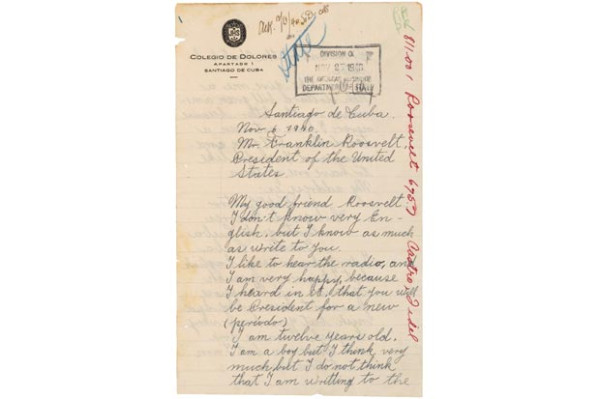 COLEGIO DE DOLORES
APARTADO 1
SANTIAGO DE CUBA
State
DIVISION OF
DEPARTMENT OF STATE
811.001 Roosevelt 6757
Castro, Fidel
Santiago de Cuba.
Nov 6 1940.
Mr Franklin Roosvelt,
President of the United
States.
My good friend Roosvelt
I don't know very En-
glish, but I know as much
as write to you.
I like to hear the radio, and
I am very happy, because
I heard in it, that you will
be President for a new
(periodo)
I am twelve years old.
I am a boy but I think very
much but I do not think
that I am writting to the